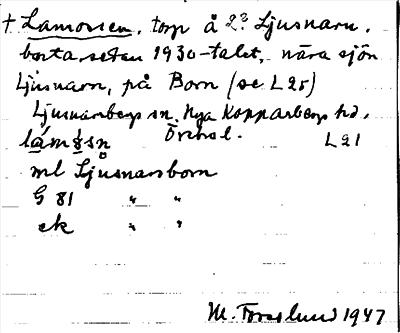 † Lamossen, torp å 2? Ljusnarn.
borta sedan 1930-talet, nära sjön
Ljusnarn, på Born (se L 25)
Ljusnarsberg sn. Nya Kopparbergs hd.
Örebro l. L 21
ml Ljusnarsborn
G 81 " "
ek " "
M. Forslund 1947